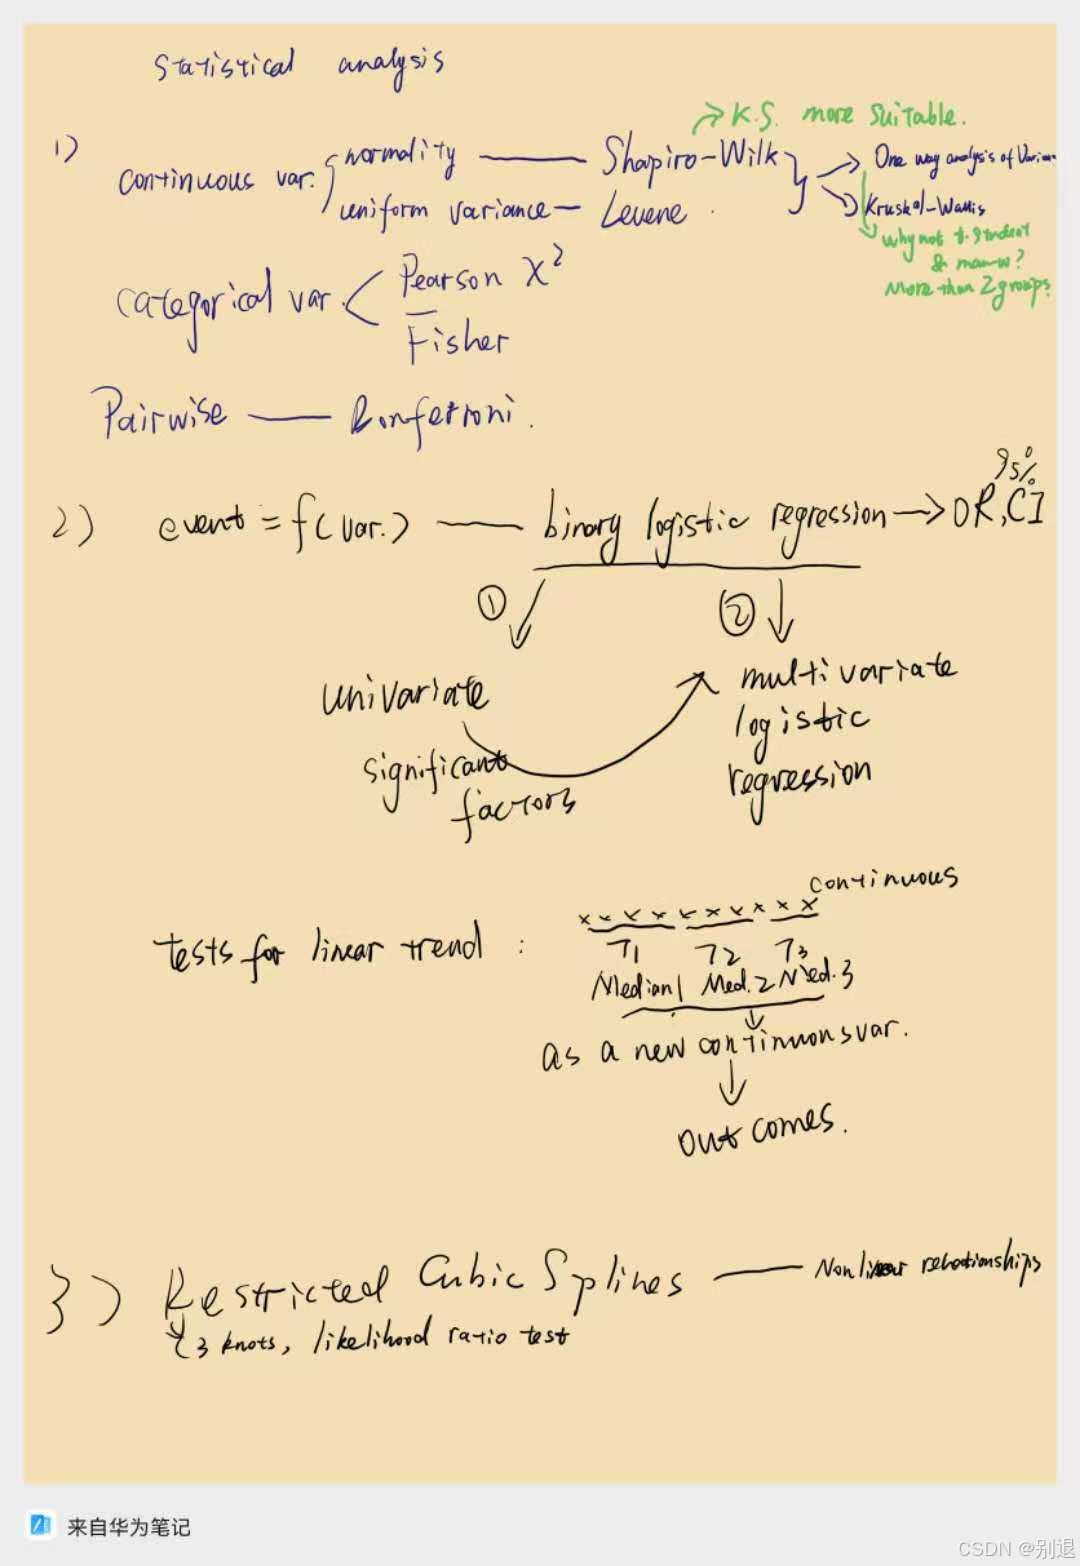 Statistical analysis
1)
→ K.S. more suitable.
continuous var. { normality —— Shapiro-Wilk } → One way analysis of Varian
uniform variance — Levene . → Kruskal-Wallis
why not t. student
& man-w?
More than 2 groups.
categorical var. < Pearson χ²
Fisher
Pairwise —— Bonferroni.
2) event = f(var.) —— binary logistic regression → OR, 95% CI
① ②
univariate
multivariate
logistic
regression
significant
factors
continuous
tests for linear trend :
× × × × × × × × × ×
T1 T2 T3
Median1 Med.2 Med.3
as a new continuous var.
outcomes.
3) Restricted Cubic Splines —— Nonlinear relationships
3 knots, likelihood ratio test
来自华为笔记
CSDN @别退